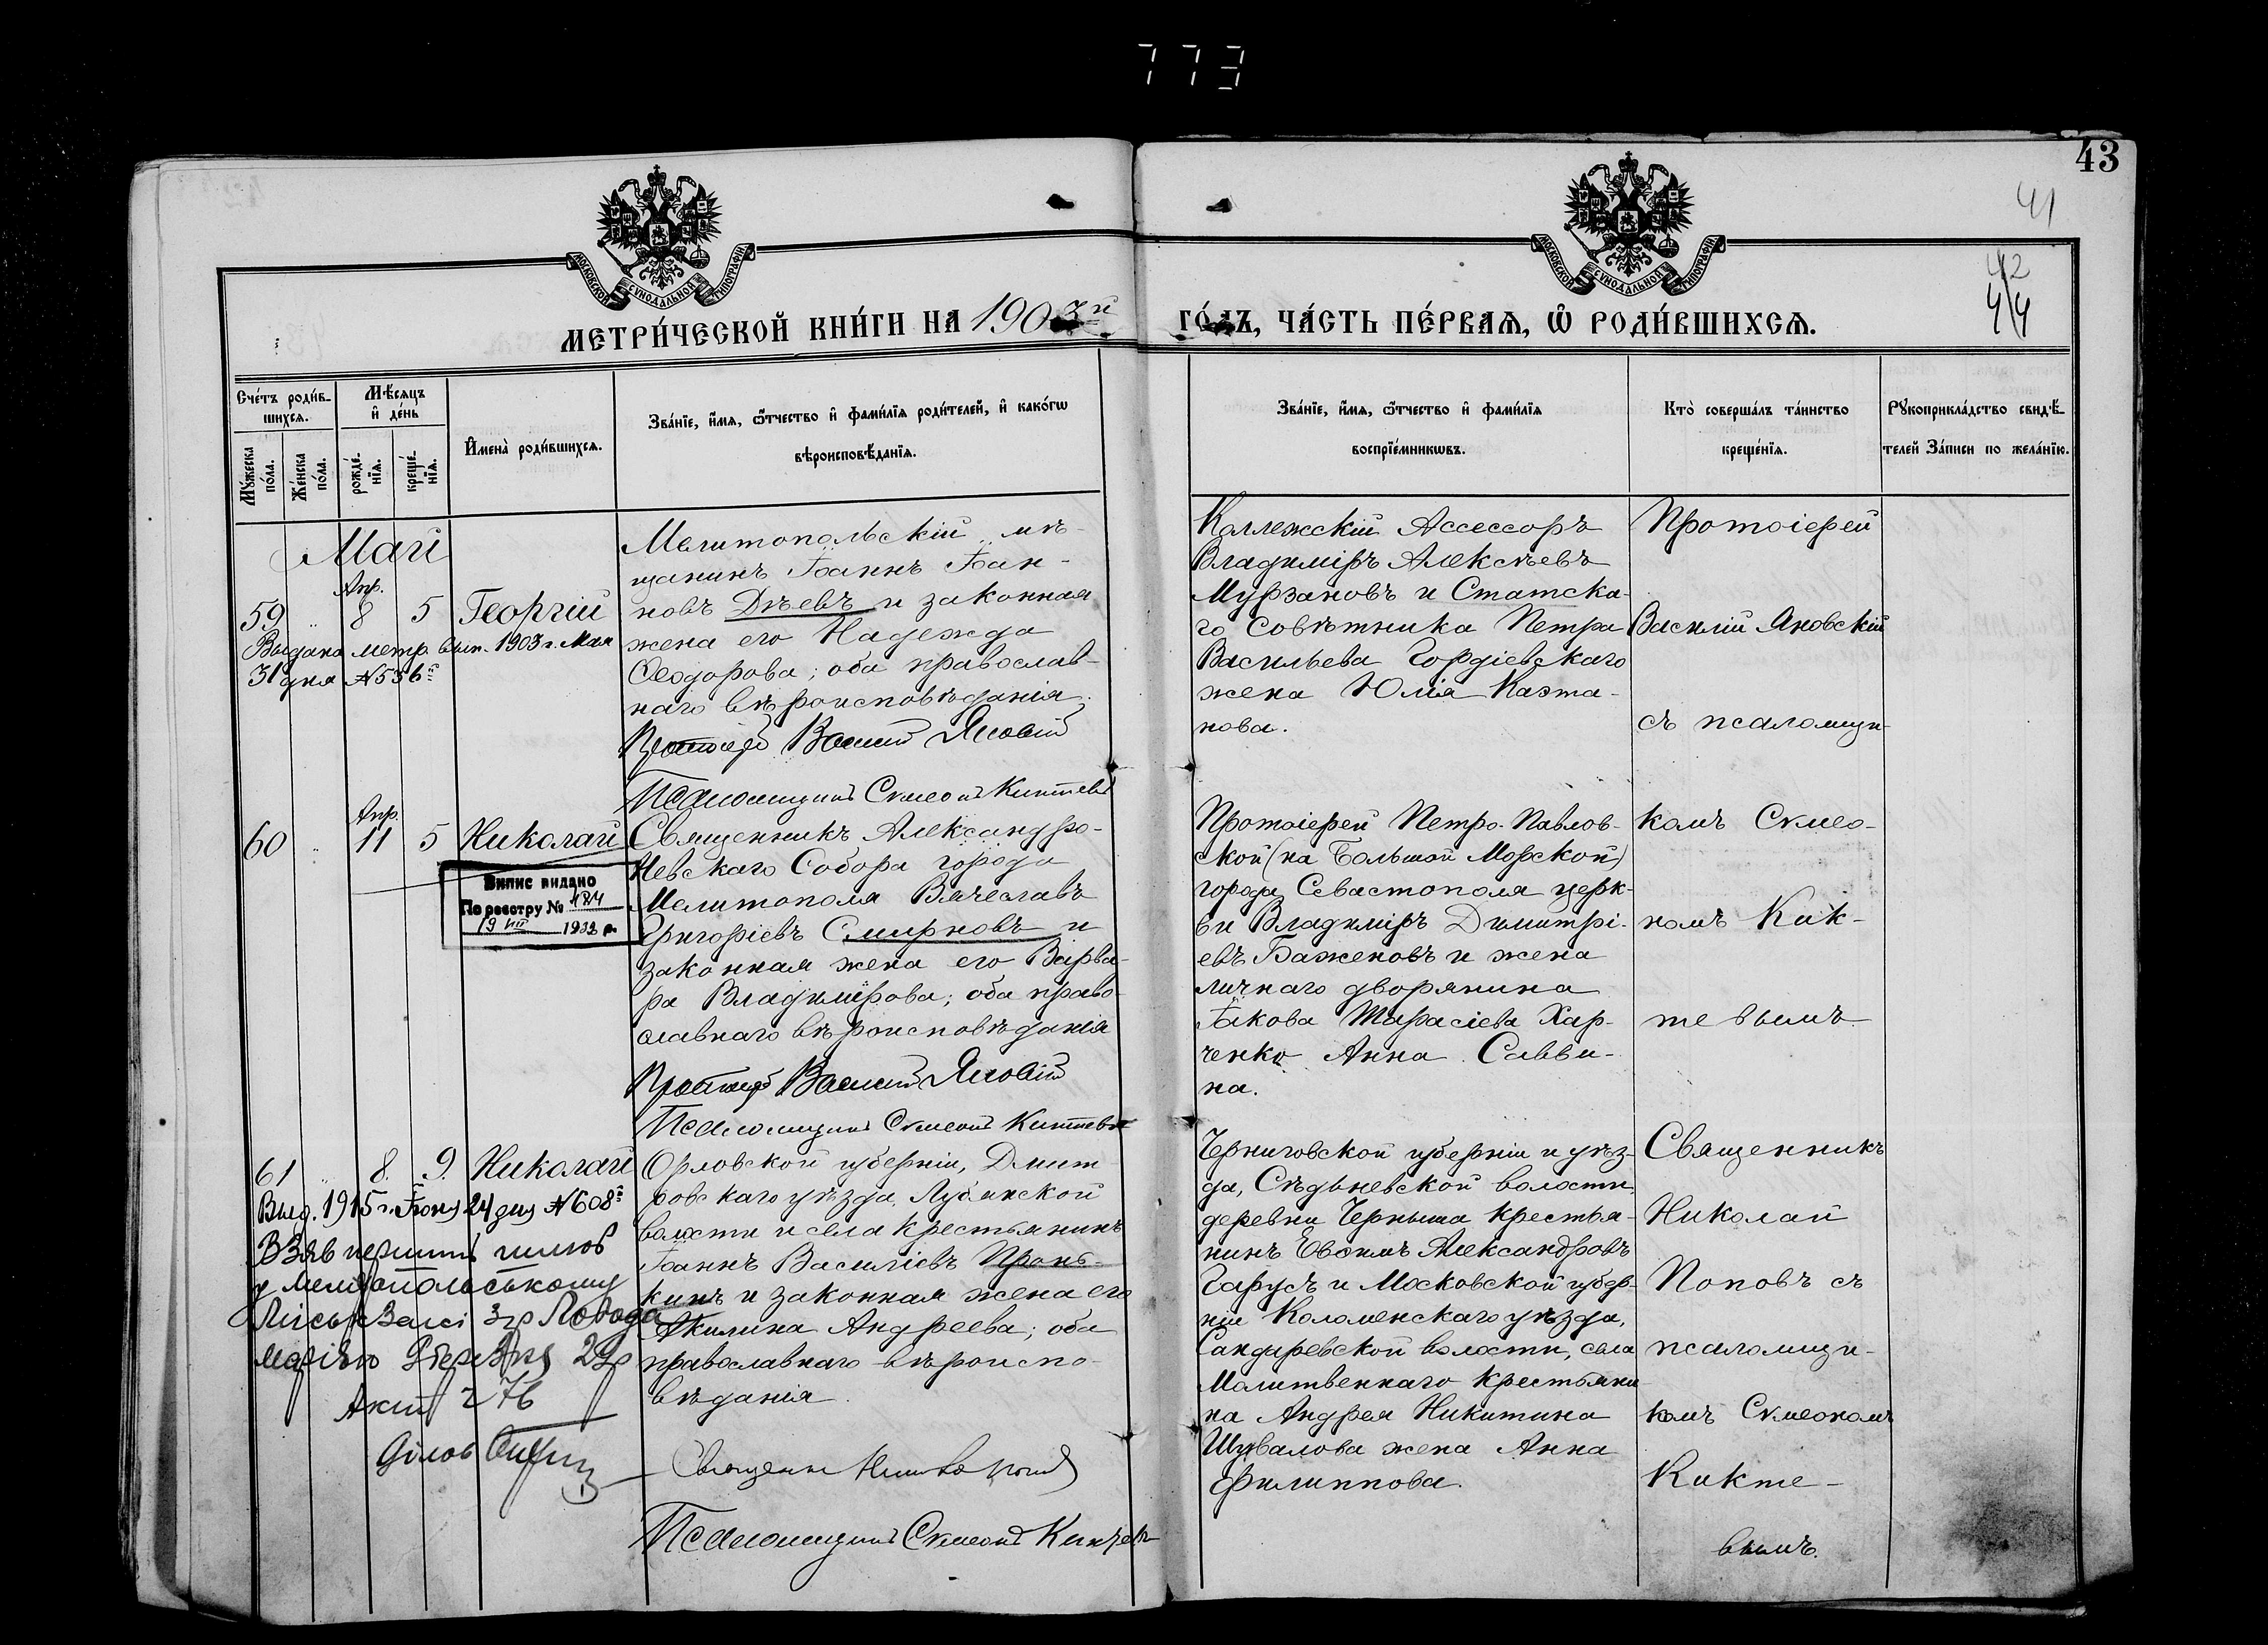 773
43
41
42
44
МОСКОВСКОЙ СУНОДАЛЬНОЙ ТИПОГРАФІИ
МОСКОВСКОЙ СУНОДАЛЬНОЙ ТИПОГРАФІИ
МЕТРИ́ЧЕСКОЙ КНИ́ГИ НА 1903й
ГО́ДЪ, ЧА́СТЬ ПЕ́РВАѦ, Ѿ РОДИ́ВШИХСѦ.
Сче́тъ роди́в-
шихся.
Мѣ́сяцъ
и҆ де́нь
Му́жеска
по́ла.
Же́нска
по́ла.
рожде́-
нїя.
креще́-
нїя.
И҆мена̀ роди́вшихся.
Зва́нїе, и҆́мя, ѻ҆́тчество и҆ фами́лїя роди́телей, и҆ како́гѡ
вѣроисповѣ́данїя.
Зва́нїе, и҆́мя, ѻ҆́тчество и҆ фами́лїя
воспрїе́мникѡвъ.
Кто̀ соверша́лъ та́инство
креще́нїя.
Рꙋкоприкла́дство свидѣ́-
телей За́писи по жела́нїю.
Май
Апр.
59 " 8 5 Георгій
Выдана метр. вып. 1903 г. Мая
31 дня №536й
Мелитопольскій мѣ-
щанинъ Іоаннъ Іоан-
новъ Дѣевъ и законная
жена его Надежда
Ѳеодорова; оба православ-
наго вѣроисповѣданія.
Протоіерей Василій Яновскій
Псаломщикъ Сѵмеонъ Киктевъ
Коллежскій Ассессоръ
Владиміръ Алексѣевъ
Мурзановъ и Статска-
го Совѣтника Петра
Васильева Гордіевскаго
жена Юлія Каэта-
нова.
Протоіерей
Василій Яновскій
съ псаломщи-
комъ Сѵмео-
номъ Кик-
тевымъ
Апр.
60 " 11 5 Николай
Випис видано
По реєстру № 484
19 VII 1933 р.
Священникъ Александро-
Невскаго Собора города
Мелитополя Вячеславъ
Григоріевъ Смирновъ и
законная жена его Варва-
ра Владимірова; оба право-
славнаго вѣроисповѣданія
Протоіерей Василій Яновскій
Псаломщикъ Сѵмеонъ Киктевъ
Протоіерей Петро-Павлов-
ской (на Большой Морской)
города Севастополя церк-
ви Владиміръ Димитрі-
евъ Баженовъ и жена
личнаго дворянина
Іакова Тарасіева Хар-
ченко Анна Савви-
на.
61 " 8. 9. Николай
Выд. 1915 г. Іюня 24 дня №608й
Взяв перший шлюб
у Мелітопольському
Акт ч 76
Орловской губерніи, Дмит-
ровскаго уѣзда, Лубянской
волости и села крестьянинъ
Іоаннъ Василіевъ Пронь-
кинъ и законная жена его
Акилина Андреева; оба
православнаго вѣроиспо-
вѣданія.
Священникъ Николай Поповъ
Псаломщикъ Сѵмеонъ Киктевъ
Черниговской губерніи и уѣз-
да, Сѣдневской волости,
деревни Черныша крестья-
нинъ Евѳимъ Александровъ
Гарусъ и Московской губер-
ніи Коломенскаго уѣзда,
Сандыревской волости, села
Молитвеннаго крестьяни
на Андрея Никитина
Шувалова жена Анна
Филиппова.
Священникъ
Николай
Поповъ съ
псаломщи-
комъ Сѵмеономъ
Кикте-
вымъ.